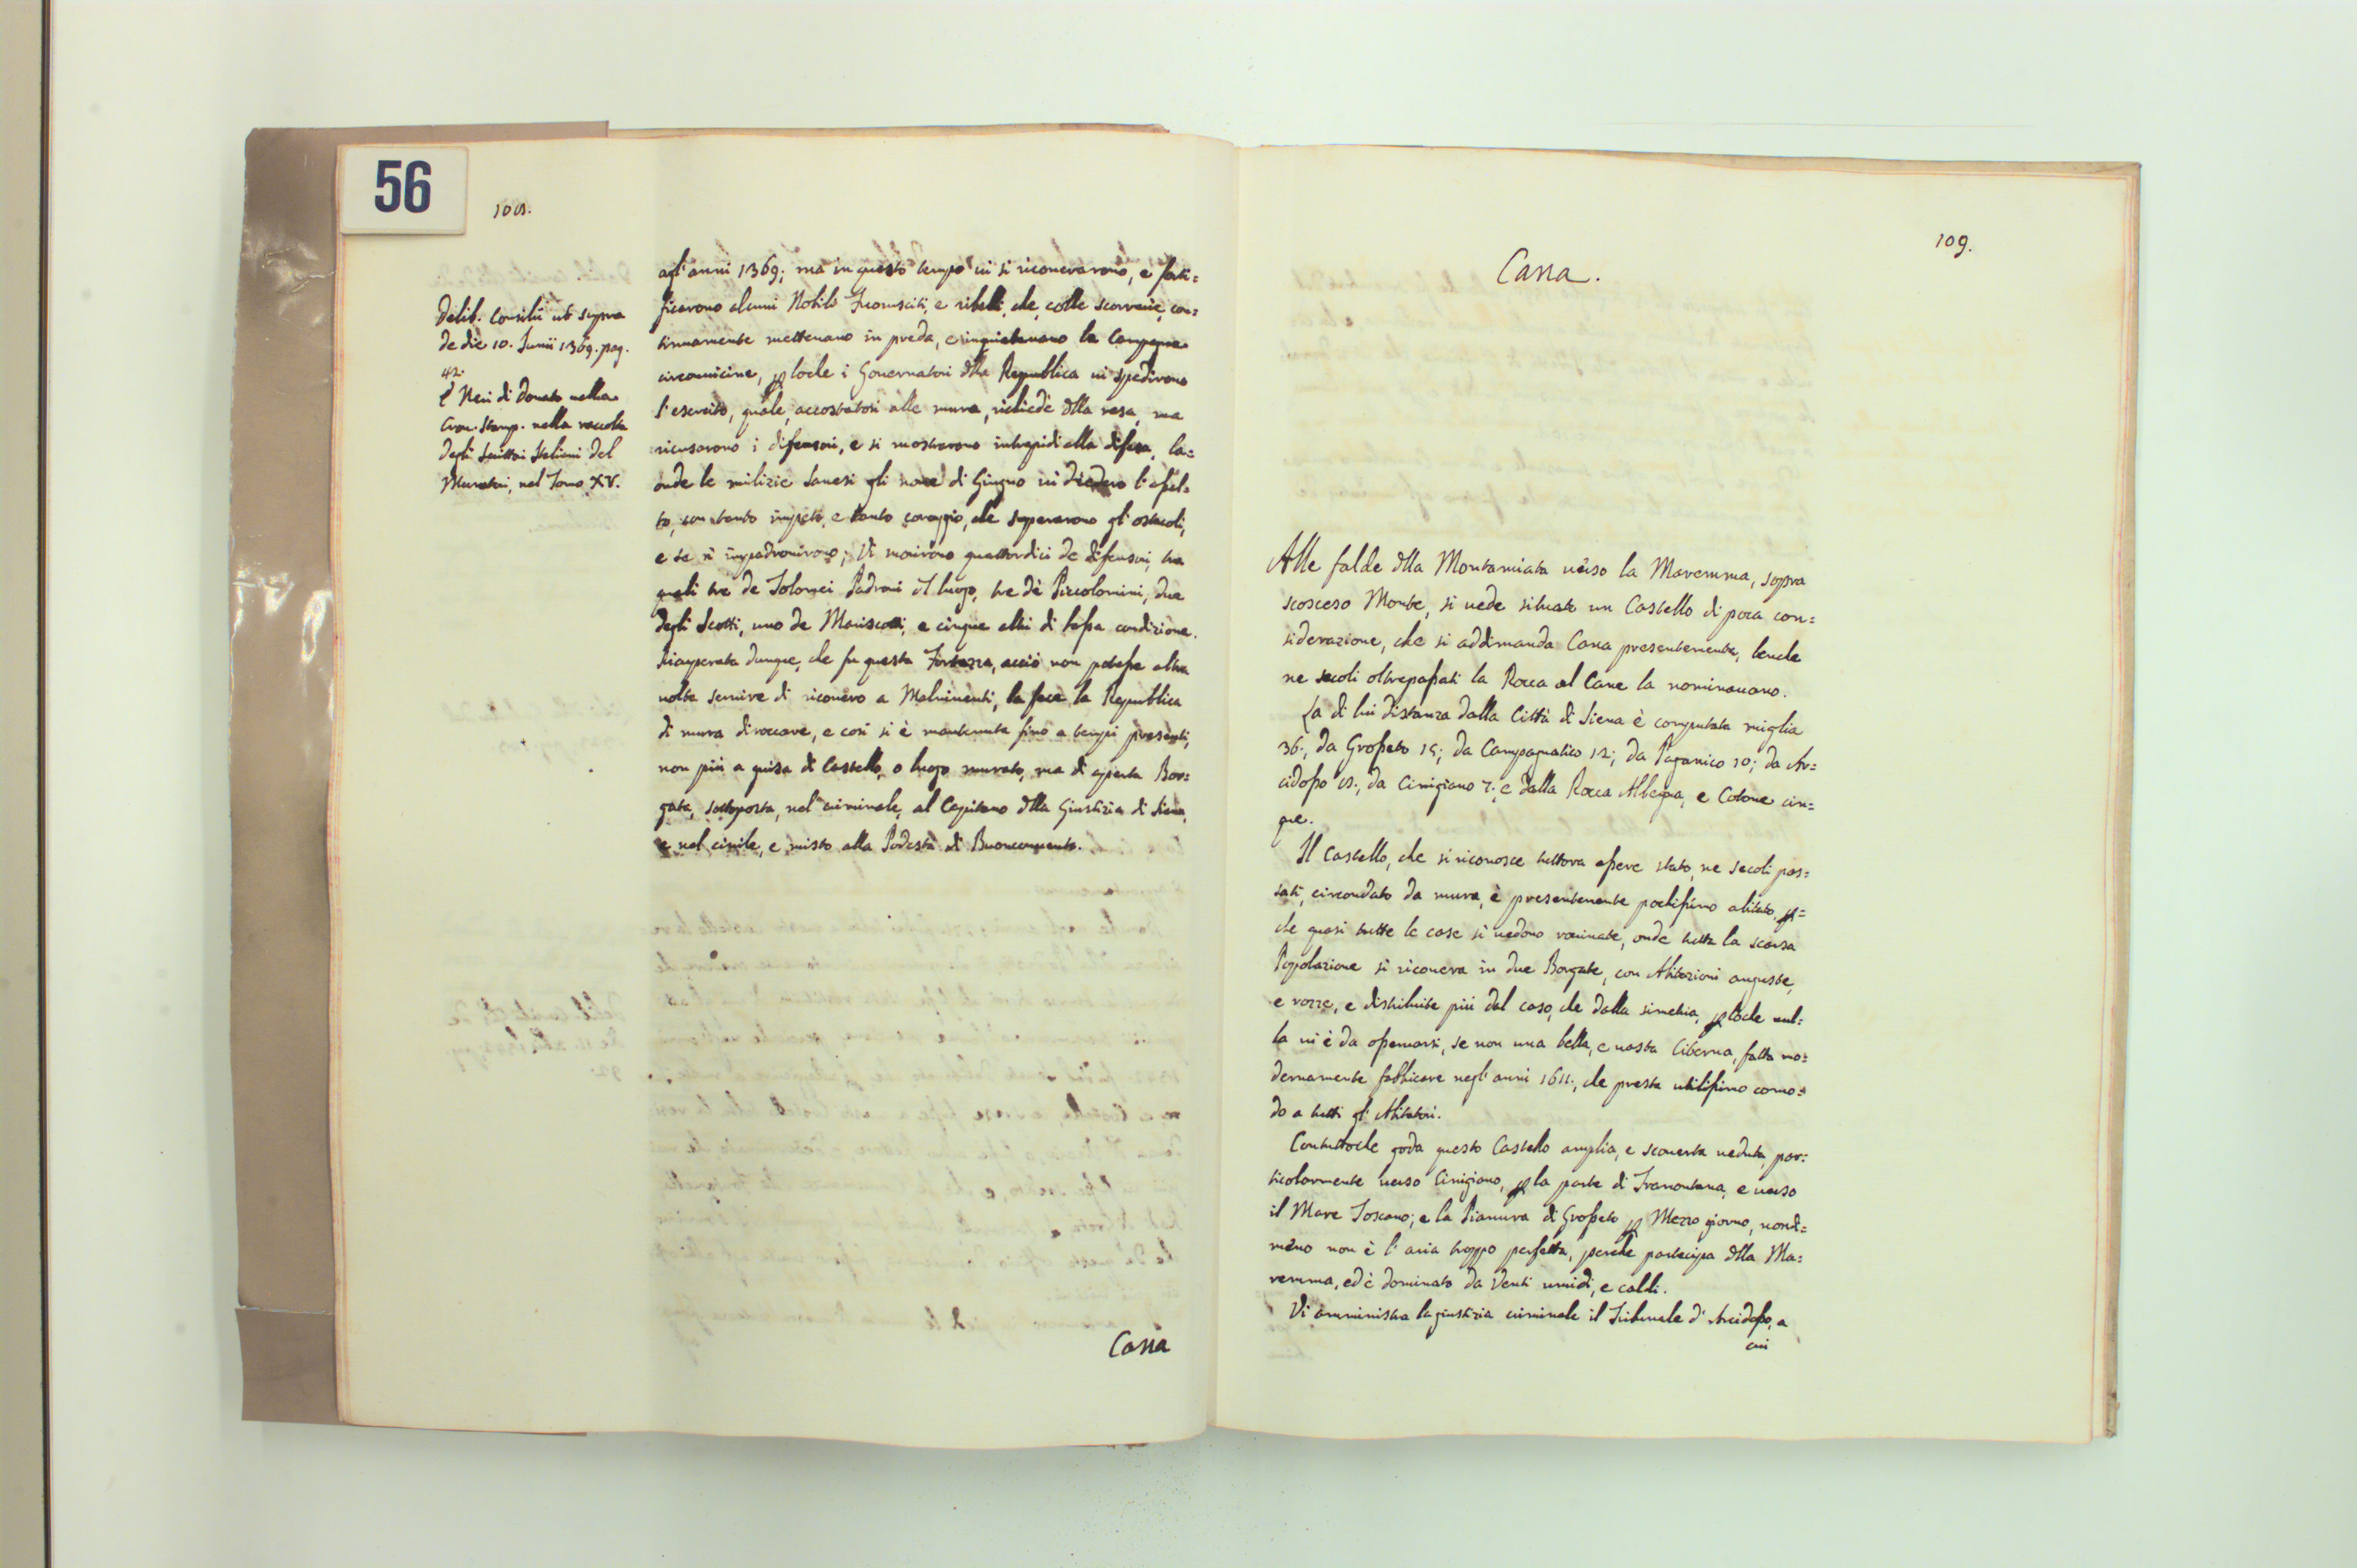 56
108.
Delib. Consilii ut supra
de die 10. Junii 1369. pag.
42.
E Neri di Donato nella
Cron. Stamp. nella raccolta
degli Scrittori Italiani del
Muratori, nel Tomo XV.
agl'anni 1369; ma in questo tempo ivi si ricoverarono, e forti=
ficarono alcuni Nobili Fuorusciti, e ribelli, che, colle scorrerie, con=
tinuamente mettevano in preda, e inquietavano la Campagna
circonvicina, ploche i Governatori dlla Republica vi spedirono
l'esercito, quale, accostatosi alle mura, richiedè dlla resa, ma
ricusarono i difensori, e si mostrarono intrepidi alla difesa, la=
onde le milizie Sanesi gli nove di Giugno vi diedero l'assal=
to, con tanto impeto, e tanto coraggio, che superarono gl'ostacoli,
e se n'impadronirono; Vi morirono quattordici de difensori, tra
quali tre de Tolomei Padroni dl luogo, tre dè Piccolomini, due
degli Scotti, uno de Mariscotti, e cinque altri di bassa condizione.
Riacquistata dunque, che fu questa Fortezza, acciò non potesse altra
volta servire di ricovero a Malviventi, la fece la Republica
di mura diroccare, e così si è mantenuta fino a tempi presenti,
non più a guisa di Castello, o luogo murato, ma di aperta Bor=
gata, sottoposta, nel criminale, al Capitano dlla Giustizia di Siena,
e nel civile, e misto alla Podestà di Buonconvento.
Canna
109.
Canna.
Alle falde dlla Montamiata verso la Maremma, sopra
scosceso Monte, si vede situato un Castello di poca con=
siderazione, che si addimanda Cana presentemente, benche
ne secoli oltrepassati la Rocca al Cane la nominavano.
La di lui distanza dalla Città di Siena è computata miglia
36; da Grosseto 15; da Campagnatico 12; da Paganico 10; da Ar=
cidosso 8; da Cinigiano 7; e dalla Rocca Albegna, e Cotone cin=
que.
Il Castello, che si riconosce tuttora essere stato, ne secoli pas=
sati, circondato da mura, è presentemente pochissimo abitato, p=
che quasi tutte le case si vedono rovinate, onde tutta la scarsa
Popolazione si ricovera in due Borgate, con Abitazioni anguste,
e rozze, e distribuite più dal caso, che dalla simetria, ploche nul=
la vi è da osservarsi, se non una bella, e vasta Citerna, fatta mo=
dernamente fabbricare negl'anni 1611., che presta utilissimo como=
do a tutti gl'Abitatori.
Contuttoche goda questo Castello amplia, e scoverta veduta, par=
ticolarmente verso Cinigiano, p la parte di Tramontana, e verso
il Mare Toscano; e la Pianura di Grosseto p Mezzo giorno, nondi=
meno non è l'aria troppo perfetta, perche partecipa dlla Ma=
remma, ed è dominato da Venti umidi, e caldi.
Vi amministra la giustizia criminale il Tribunale d'Arcidosso, a
cui